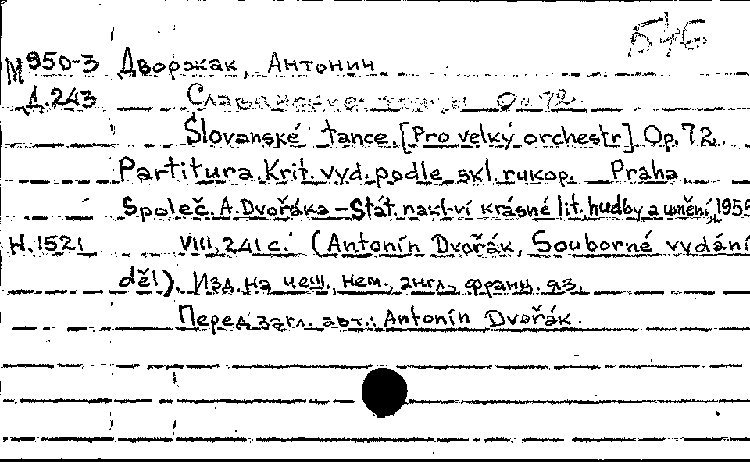 546
М950-3 Дворжак, Антонин
Д.243 Славянские танцы Op.72
Slovanské tance.[Pro velký orchestr].Op.72.
Partitura.Krit.vyd.podle skl.rukop. Praha,
Společ.A.Dvořáka-Stát.nakl-ví krásné lit.,hudby a umění,1955
Н.1521 VIII,241 с. (Antonín Dvořák, Souborné vydání
děl). Изд.на чеш., нем., англ., франц. яз.
Перед загл. авт.: Antonín Dvořák.